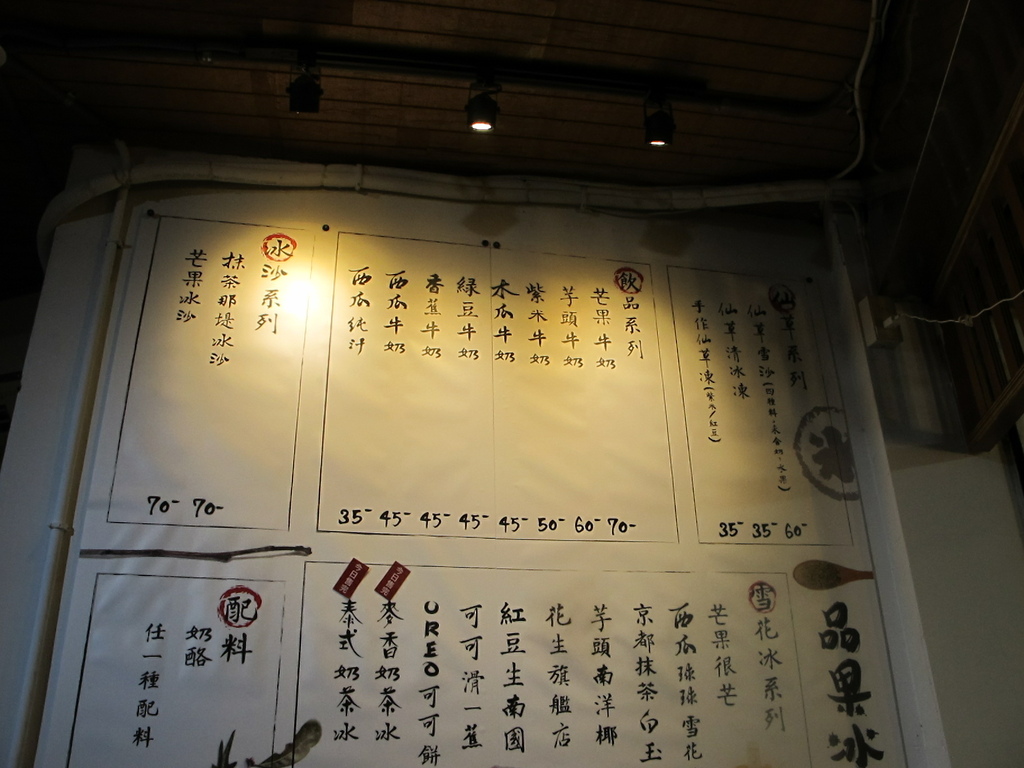 仙草系列
仙草雪沙
60-
仙草清冰凍
35-
手作仙草凍(紫米/紅豆)
35-
冰
飲品系列
芒果牛奶
70-
芋頭牛奶
60-
紫米牛奶
50-
木瓜牛奶
45-
綠豆牛奶
45-
香蕉牛奶
45-
西瓜牛奶
45-
西瓜純汁
35-
冰沙系列
抹茶那堤冰沙
70-
芒果冰沙
70-
品果冰
雪花冰系列
芒果很芒
西瓜球球雪花
京都抹茶白玉
芋頭南洋椰
花生旗艦店
紅豆生南國
可可滑一蕉
OREO可可餅
麥香奶茶冰
泰式奶茶冰
配料
奶酪
任一種配料